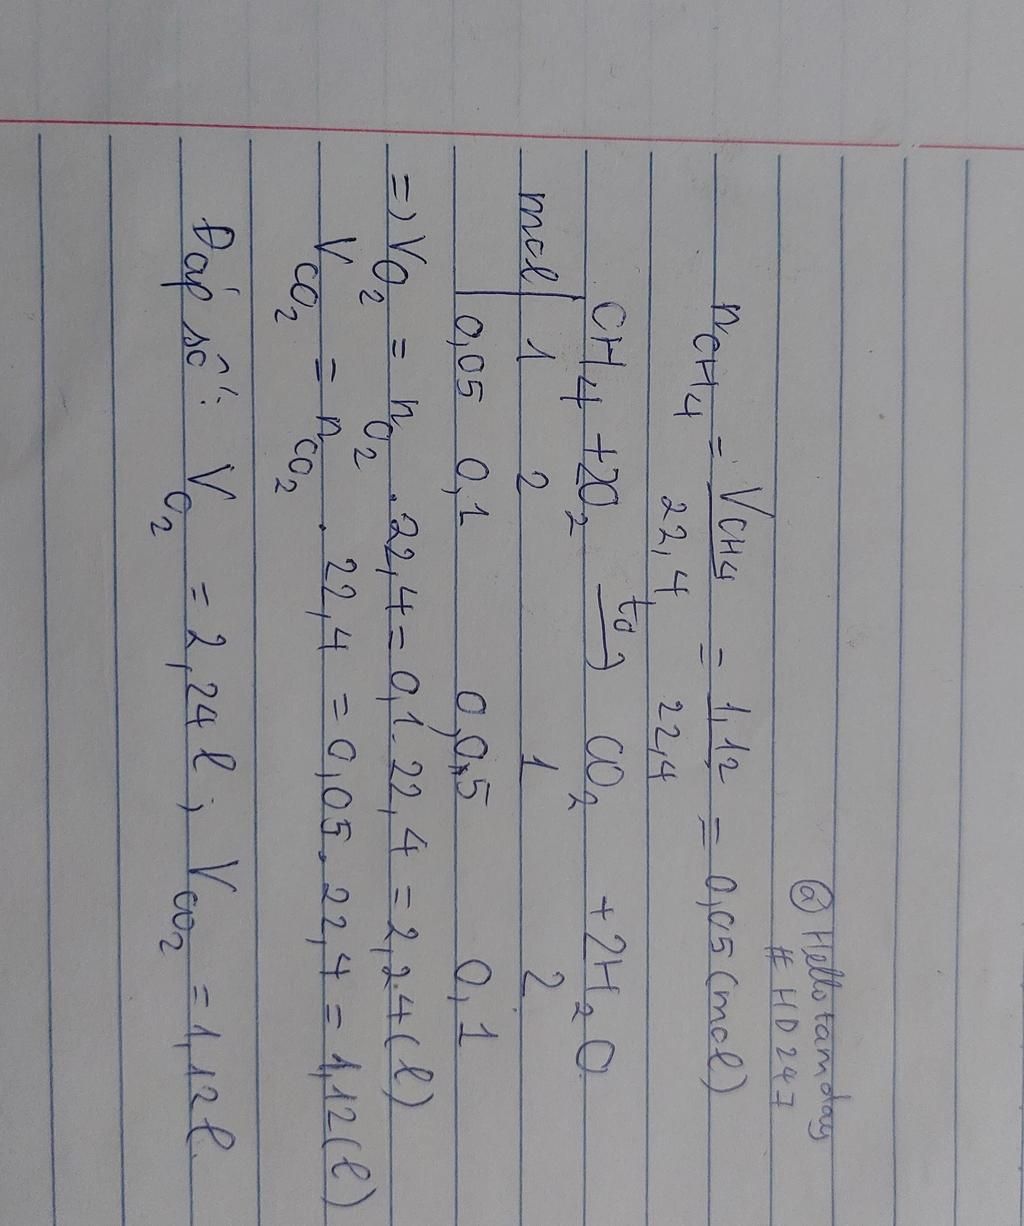 @Hellotamday
#HD247
nCH4 = VCH4/22,4 = 1,12/22,4 = 0,05(mol)
CH4 + 2O2 to→ CO2 + 2H2O
mol 1 2 1 2
0,05 0,1 0,05 0,1
=> VO2 = nO2 . 22,4 = 0,1 . 22,4 = 2,24(l)
VCO2 = nCO2 . 22,4 = 0,05 . 22,4 = 1,12(l)
Đáp số: VO2 = 2,24l; VCO2 = 1,12l.